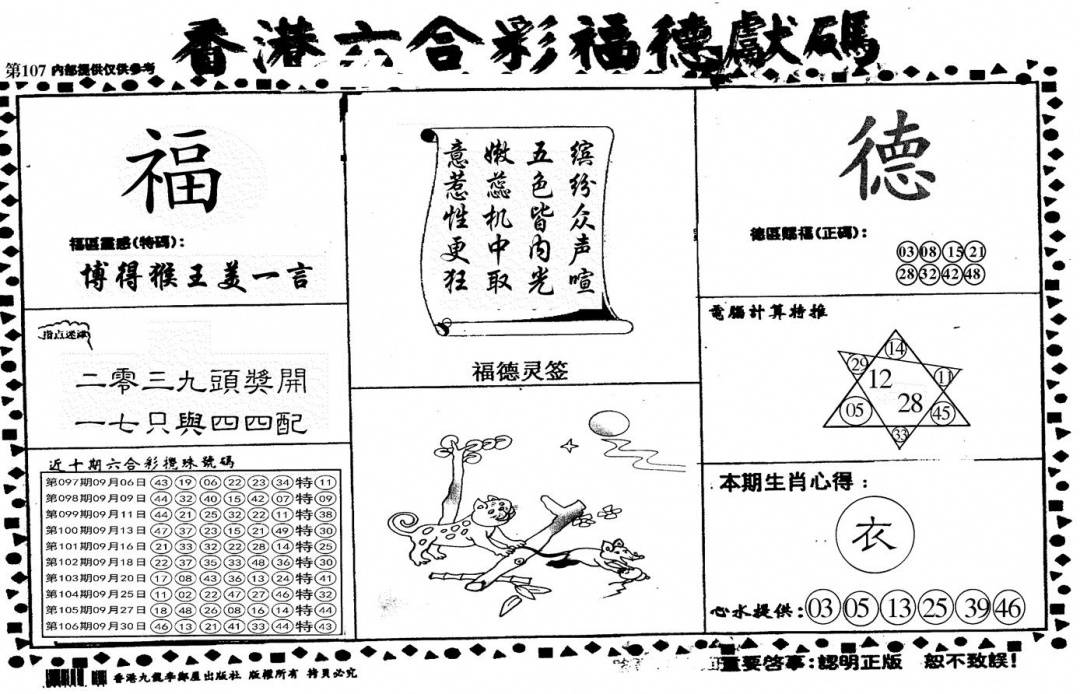 香港六合彩福德獻碼
第107 内部提供仅供参考
福
福區靈感(特碼):
博得猴王美一言
指点迷津
二零三九頭獎開
一七只與四四配
近十期六合彩攪珠號碼
第097期09月06日 43 19 06 22 23 34 特 11
第098期09月09日 44 32 40 15 42 07 特 09
第099期09月11日 44 21 25 32 22 11 特 38
第100期09月13日 47 37 23 15 21 49 特 30
第101期09月16日 21 33 32 22 28 14 特 25
第102期09月18日 22 37 35 33 48 36 特 30
第103期09月20日 17 08 43 36 13 24 特 41
第104期09月25日 11 02 22 47 27 46 特 32
第105期09月27日 18 48 26 08 16 14 特 44
第106期09月30日 46 13 21 41 33 44 特 43
缤纷众声喧
五色皆内光
嫩蕊机中取
意惹性更狂
福德灵签
德
德區賜福(正碼):
03 08 15 21
28 32 42 48
電腦計算特推
14
29 11
12
28
05 45
33
本期生肖心得:
衣
心水提供: 03 05 13 25 39 46
香港九龍李鄭屋出版社 版權所有 拷貝必究
重要啓事:認明正版 恕不致誤!